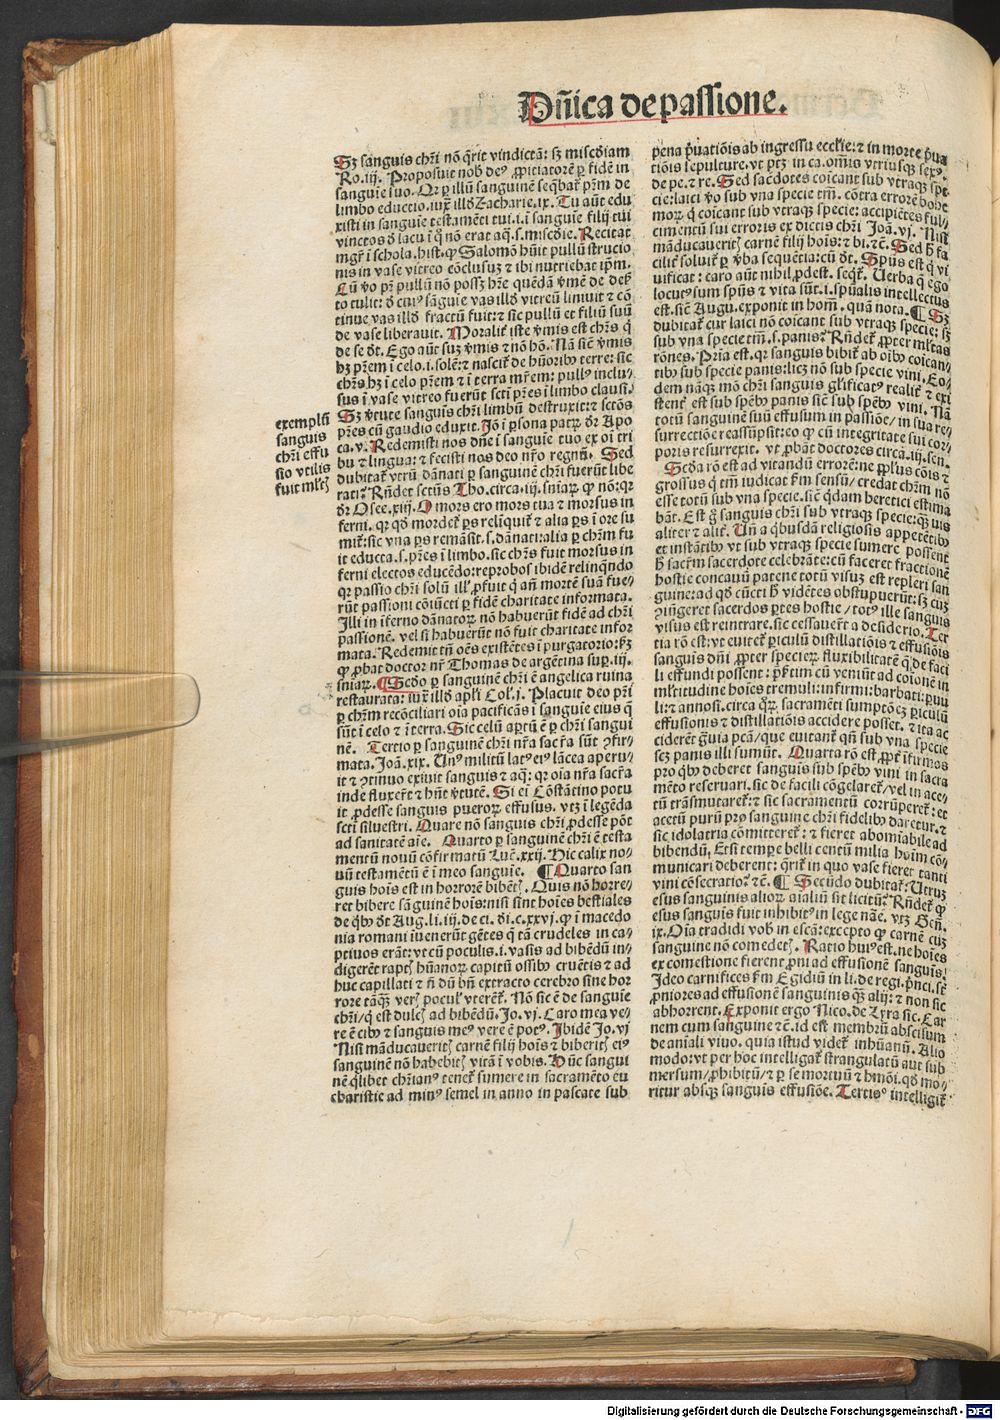 Dñica de passione.
Sꝫ sanguis chr̄i nō q̄rit vindictā: sꝫ miscd̄iam
Ro.iij. Proposuit nob̄ deꝰ ꝓpitiatorē ꝑ fidē in
sanguīe suo. Qr ꝑ illū sanguinē seq̄baṫ pr̄m de
limbo eductio. iuxͭ illd̄ Zacharie.ix. Tu aūt edu
xisti in sanguīe testamēti tui.i.ī sanguīe filij tui
vinctos d̄ lacu ī q̊ nō erat aq̄.s.miscd̄ie. Recitat
mgr̄ ī schola.hist. ꝙ Salomō hūit pullū structio
nis in vase vitreo cōclusuꝫ ⁊ ibi nutriebat ip̄m.
Cū ṽo pr̄ pullū nō possꝫ hr̄e quēdā ṽmē de deẜ
to tulit: d̄ cuiꝰ sāguīe vas illd̄ vitreū liniuit ⁊ cō
tinue vas illd̄ fractū fuit: ⁊ sic pullū et filiū suū
de vase liberauit. Moraliṫ iste ṽmis est chr̄s q̇
de se d̄t. Ego aūt suꝫ ṽmis ⁊ nō hō. Nā sič ṽmis
hꝫ pr̄em ī celo.i.solē: ⁊ nasciṫ de hūoribꝰ terre: sic
chr̄s hꝫ ī celo pr̄em ⁊ ī terra mr̄em: pullꝰ inclu-
susꝰ ī vase vitreo fuerūt sct̄i pr̄es ī limbo clausi.
Sꝫ ṽtute sanguis chr̄i limbū destruxit: ⁊ sct̄os
pr̄es cū gaudio eduxit. Jō ī ꝑsona patrꝝ dr̄ Apo
ca.v. Redemisti nos dn̄e ī sanguīe tuo ex oī tri
bu ⁊ lingua: ⁊ fecisti nos deo nr̄o regnū. Sed
dubitaṫ vtrū dānati ꝑ sanguinē chr̄i fuerūt libe
rati? Rn̄det sctūs Tho.circa.iij.sniaꝝ ꝙ nō: qꝛ
dr̄ Osee.xiij. O mors ero mors tua ⁊ morsus in
ferni. qꝛ qd̄ mordeṫ ꝑs relīquiṫ ⁊ alia ꝑs ī ore su
miṫ: sic vna ꝑs remāsit.s.dānati: alia ꝑ chr̄m fu
it educta.s.pr̄es ī limbo. sic chr̄s fuit morsus in
ferni electos educēdo: reprobos ibidē relinq̄ndo
qꝛ passio chr̄i solū illꝭ ꝓfuit q̇ añ mortē suā fue-
rūt passioni cōiūcti ꝑ fidē charitate informata.
Jlli in īferno dānatoꝝ nō habuerūt fidē ad chr̄i
passionē. vel si habuerūt nō fuit charitate infor
mata. Redemit tn̄ oēs existētes ī purgatorio: ẜꝫ
ꝙ ꝓbat doctor nr̄ Thomas de argētina suꝑ.iij.
sniaꝝ. ¶ Scd̄o ꝑ sanguinē chr̄i ē angelica ruina
restaurata: iuxͭ illd̄ apl̄i Col̄.j. Placuit deo pr̄i
ꝑ chr̄m recōciliari oīa pacificās ī sanguīe eius q̄
sūt ī celo ⁊ ī terra. Sic celū aꝑtū ē ꝑ chr̄i sangui
nē. Tertio ꝑ sanguinē chr̄i nr̄a sacr̄a sūt ↄfir-
mata. Joā.xix. Unꝰ militū latꝰ eiꝰ lācea aperu-
it ⁊ ↄtinuo exiuit sanguis ⁊ aq̄: qꝛ oīa nr̄a sacr̄a
inde fluxer̄t ⁊ hn̄t ṽtutē. Si ei Cōstātino potu
it ꝓdesse sanguis pueroꝝ effusus. vtꝫ ī legēda
scti siluestri. Quare nō sanguis chr̄i ꝓdesse pōt
ad sanitatē aīe. Quarto ꝑ sanguinē chr̄i ē testa
mentū nouū cōfirmatū Luč.xxij. Hic calix no-
uū testamētū ē ī meo sanguīe. ¶ Quarto san
guis hoīs est in horrorē bibētꝭ. Quis nō horre-
ret bibere sāguinē hoīs: nisi sint hoīes bestiales
de qḃꝰ d̄t Aug.li.iij.de ci.di.c.xxvj. ꝙ ī macedo
nia romani iuenerūt gētes q̄ tā crudeles in ca-
ptiuos erāt: vt cū poculis.i.vasis ad bibēdū in-
digerēt raptꝭ hūanoꝝ capitū ossibꝰ cruētis ⁊ ad
huc capillati ⁊ ñ dū bñ extracto cerebro sine hor
rore tāq̄ꝫ verꝭ poculꝭ vterēṫ. Nō sic ē de sanguīe
chr̄i/ q̇ est dulcꝭ ad bibēdū. Jo.vj. Caro mea ve-
re ē cibꝰ ⁊ sanguis meꝰ vere ē potꝰ. Jbidē Jo.vj
Nisi māducaueritꝭ carnē filij hoīs ⁊ biberitꝭ eiꝰ
sanguinē nō habebitꝭ vitā ī vobis. Hūc sangui
nē q̄libet chr̄ianꝰ teneṫ sumere in sacramēto eu
charistie ad minꝰ semel in anno in pascate sub
exemplū
sanguis
chr̄i effu
sio vtilis
fuit ml̄tꝭ
pena p̄uatiōis ab ingressu eccl̄ie: ⁊ in morte p̄ua
tiōis sepulture. vt ptꝫ in ca. om̄is vtriusqꝫ sexꝰ.
de pe.⁊ re. Sed sac̄dotes cōicant sub vtraqꝫ spe
cie: laici ṽo sub vna specie tm̄. cōtra errorē bohe
moꝝ q̇ cōicant sub vtraqꝫ specie: accipiētes ful-
cimentū sui erroris ex dictis chr̄i Joā.vj. Nisi
māducaueritꝭ carnē filij hoīs: ⁊ bi.⁊č. Sed h̄ fa
ciliṫ soluiṫ ꝑ ṽba sequētia: cū d̄t. Spūs est q̇ vi
uificat: caro aūt nihil ꝓdest. seqṫ. Uerba q̄ ego
locutꝰ sum spūs ⁊ vita sūt.i.sp̄ualis intellectus
est. sič Augu. exponit in hom̄. quā nota. ¶ Sꝫ
dubitaṫ cur laici nō cōicant sub vtraqꝫ specie: sꝫ
sub vna specie tm̄.s.panis? Rn̄deṫ ꝓpter ml̄tas
rōnes. Pria est. qꝛ sanguis bibiṫ ab oībꝰ cōican-
tibꝰ sub specie panis: licꝫ nō sub specie vini. Eo-
dem nāqꝫ mō chr̄i sanguis gl̄ificatꝰ realiṫ ⁊ exi
stenṫ est sub spēbꝰ panis sič sub spēbꝰ vini. Nā
totū sanguinē suū effusum in passiōe/ in sua re-
surrectiōe reassūpsit: eo ꝙ cū integritate sui cor-
poris resurrexit. vt ꝓbāt doctores circa.iij.sen.
Scd̄a rō est ad vitandū errorē: ne ppl̄us cōis ⁊
grossus q̇ tm̄ iudicat ẜm sensū/ credat chr̄m nō
esse totū sub vna specie. sič q̇dam heretici estima
bāt. Est g̊ sanguis chr̄i sub vtraqꝫ specie: q̄ꝫuis
aliter ⁊ aliṫ. Un̄ a q̇busdā religiosis appetētibꝰ
et instātibꝰ vt sub vtraqꝫ specie sumere possent
h̄ sacr̄m sacerdote celebrāte: cū faceret fractionē
hostie concauū patene totū visuꝫ est repleri san
guine: ad qd̄ cūcti h̄ vidētes obstupuerūt: sꝫ cuꝫ
ↄiūgeret sacerdos ꝑtes hostie/ totꝰ ille sanguis
visus est reintrare. sic cessauer̄t a desiderio. Ter
tia rō est: vt euiteṫ ꝑiculū distillatiōis ⁊ effusiōis
sanguis dn̄i ꝓpter specieꝝ fluxibilitatē q̄ de faci
li effundi possent: p̄ẜtim cū veniūt ad cōionē in
ml̄titudine hoīes tremuli: infirmi: barbati: ꝑuu
li: ⁊ annosi. circa q̄ꝝ sacramēti sumptōeꝫ ꝑiculū
effusionis ⁊ distillatiōis accidere posset. ⁊ ita ac
ciderēt g̃uia pcā/ que euitanṫ qñ sub vna specie
scꝫ panis illi sumūt. Quarta rō est ꝓpṫ īfirmos
pro qḃꝰ deberet sanguis sub spēbꝰ vini in sacra
mēto reseruari. sic de facili cōgelareṫ/ vel in ace-
tū trāsmutareṫ: ⁊ sic sacramentū corrūpereṫ: et
acetū purū pro sanguine chr̄i fidelibꝰ dareṫur. ⁊
sic idolatria cōmittereṫ: ⁊ fieret abomīabile ad
bibendū. Etsi tempe belli centū milia hoīm cō-
municari deberent: q̄riṫ in quo vase fieret tanti
vini cōsecratio? ⁊č. ¶ Secūdo dubitaṫ: Utruꝫ
esus sanguinis alioꝝ aīaliū sit licitus? Rn̄deṫ ꝙ
esus sanguis fuit inhibitꝰ in lege nāe. vtꝫ Gen̄.
ix. Oīa tradidi vob̄ in escā: excepto ꝙ carnē cuꝫ
sanguine nō comedetꝭ. Ratio huiꝰ est. ne hoīes
ex comestione fierent ꝓni ad effusionē sanguis.
Jdeo carnifices ẜm Egidiū in li.de regi.pn̄ci.sṫ
ꝓniores ad effusionē sanguinis q̄ꝫ alij: ⁊ non sic
abhorrent. Exponit ergo Nico. de Lyra sic. Car
nem cum sanguine ⁊č. id est membrū abscisum
de aīali viuo. quia istud videṫ inhūanū. Alio
modo: vt per hoc intelligaṫ strangulatū aut sub
mersum/ ꝓhibitū/ ⁊ ꝑ se mortuū ⁊ hmōi. qd̄ mo-
ritur absqꝫ sanguis effusiōe. Tertius intelligiṫ
Digitalisierung gefördert durch die Deutsche Forschungsgemeinschaft - DFG